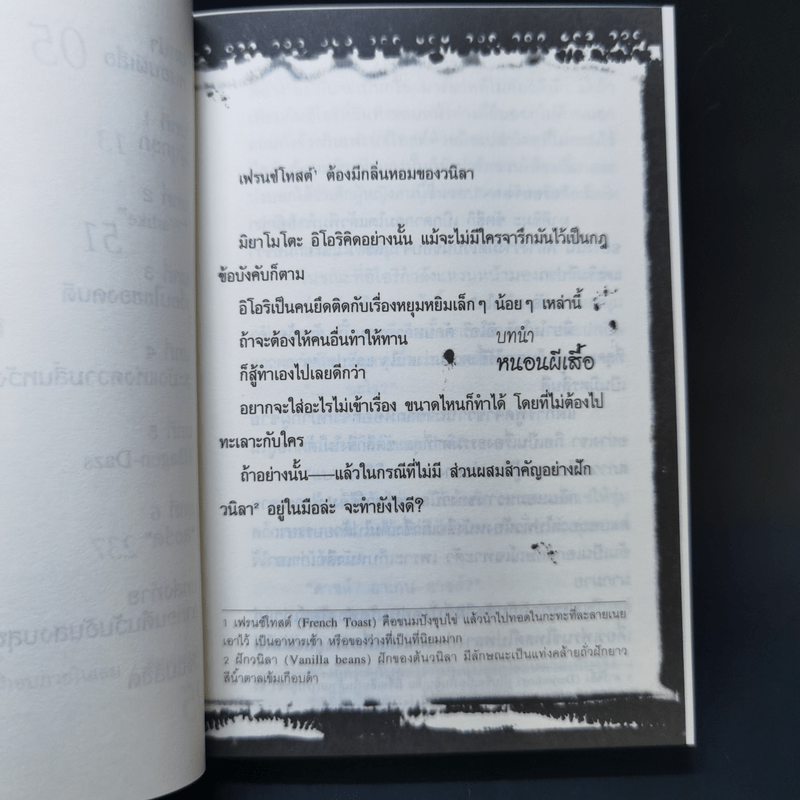 เฟรนช์โทสต์¹ ต้องมีกลิ่นหอมของวนิลา
มิยาโมโตะ อิโอริคิดอย่างนั้น แม้จะไม่มีใครจารึกมันไว้เป็นกฎ
ข้อบังคับก็ตาม
อิโอริเป็นคนยึดติดกับเรื่องหยุมหยิมเล็กๆ น้อยๆ เหล่านี้
ถ้าจะต้องให้คนอื่นทำให้ทาน
ก็สู้ทำเองไปเลยดีกว่า
บทนำ
หนอนผีเสื้อ
อยากจะใส่อะไรไม่เข้าเรื่อง ขนาดไหนก็ทำได้ โดยที่ไม่ต้องไป
ทะเลาะกับใคร
ถ้าอย่างนั้น——แล้วในกรณีที่ไม่มี ส่วนผสมสำคัญอย่างฝัก
วนิลา² อยู่ในมือล่ะ จะทำยังไงดี?
1 เฟรนช์โทสต์ (French Toast) คือขนมปังชุบไข่ แล้วนำไปทอดในกะทะที่ละลายเนย
เอาไว้ เป็นอาหารเช้า หรือของว่างที่เป็นที่นิยมมาก
2 ฝักวนิลา (Vanilla beans) ฝักของต้นวนิลา มีลักษณะเป็นแท่งคล้ายถั่วฝักยาว
สีน้ำตาลเข้มเกือบดำ